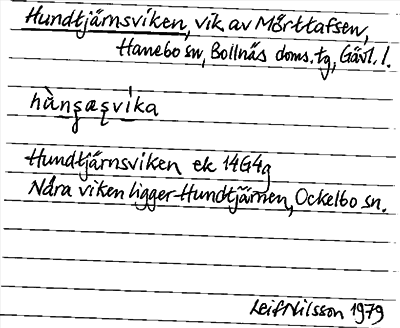 Hundtjärnsviken, vik av Mörttafsen,
Hanebo sn, Bollnäs doms. tg, Gävl. l.
hùnʂæʂvika
Hundtjärnsviken ek 14G4g
Nära viken ligger Hundtjärnen, Ockelbo sn.
Leif Nilsson 1979